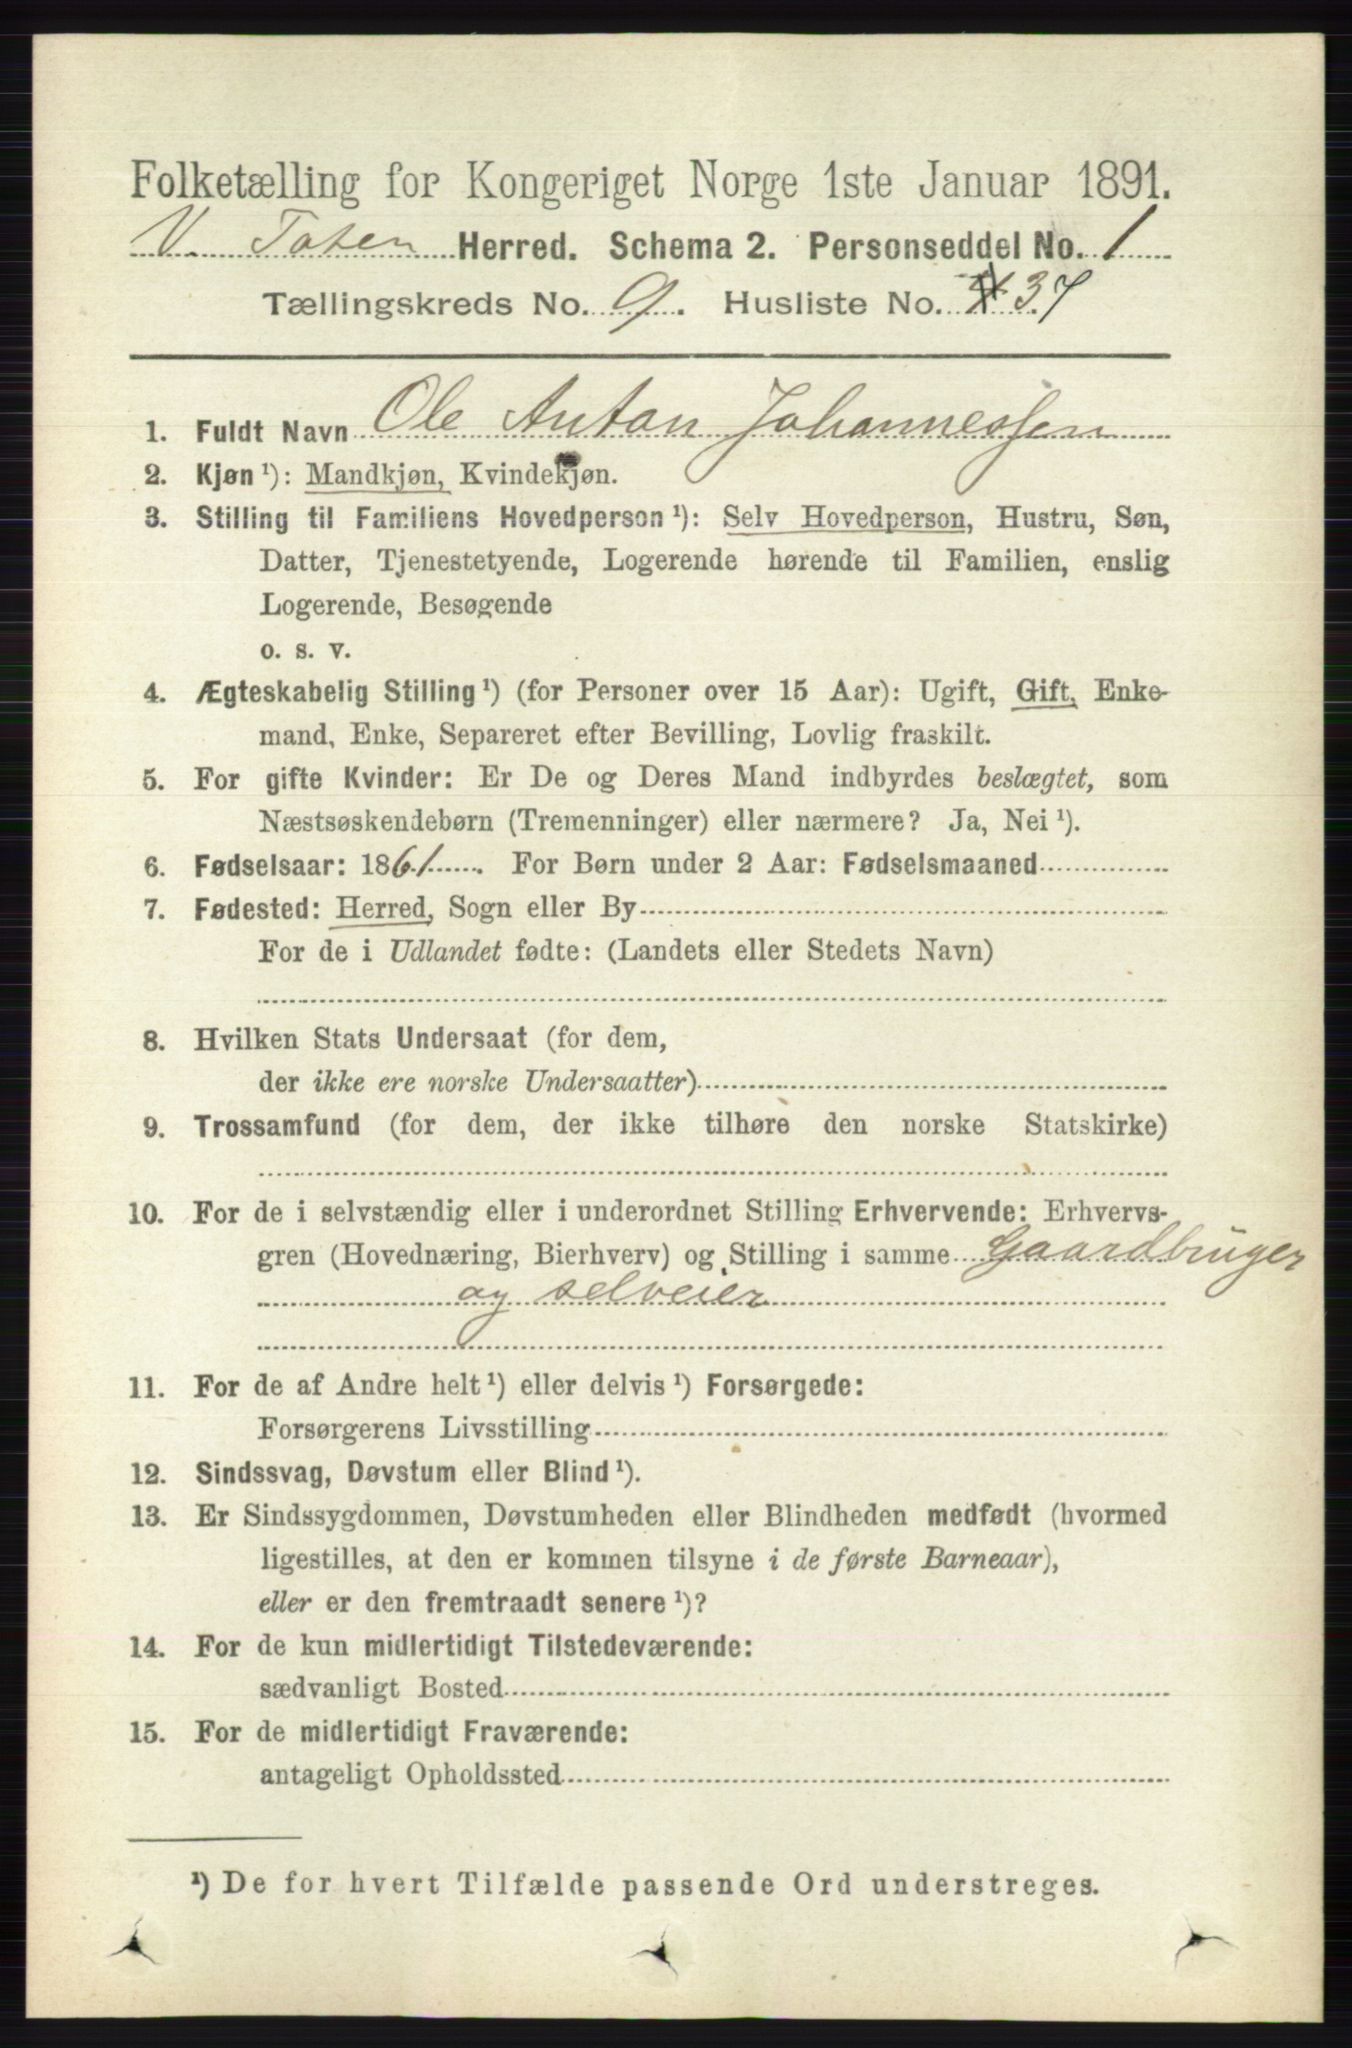 Folketælling for Kongeriget Norge 1ste Januar 1891.
V. Toten Herred. Schema 2. Personseddel No. 1
Tællingskreds No. 9. Husliste No. 37
1. Fuldt Navn Ole Anton Johannessen
2. Kjøn ¹): Mandkjøn, Kvindekjøn.
3. Stilling til Familiens Hovedperson ¹): Selv Hovedperson, Hustru, Søn,
Datter, Tjenestetyende, Logerende hørende til Familien, enslig
Logerende, Besøgende
o. s. v.
4. Ægteskabelig Stilling ¹) (for Personer over 15 Aar): Ugift, Gift, Enke-
mand, Enke, Separeret efter Bevilling, Lovlig fraskilt.
5. For gifte Kvinder: Er De og Deres Mand indbyrdes beslægtet, som
Næstsøskendebørn (Tremenninger) eller nærmere? Ja, Nei ¹).
6. Fødselsaar: 1861. For Børn under 2 Aar: Fødselsmaaned
7. Fødested: Herred, Sogn eller By
For de i Udlandet fødte: (Landets eller Stedets Navn)
8. Hvilken Stats Undersaat (for dem,
der ikke ere norske Undersaatter)
9. Trossamfund (for dem, der ikke tilhøre den norske Statskirke)
10. For de i selvstændig eller i underordnet Stilling Erhvervende: Erhvervs-
gren (Hovednæring, Bierhverv) og Stilling i samme Gaardbruger
og selveier
11. For de af Andre helt ¹) eller delvis ¹) Forsørgede:
Forsørgerens Livsstilling
12. Sindssvag, Døvstum eller Blind ¹).
13. Er Sindssygdommen, Døvstumheden eller Blindheden medfødt (hvormed
ligestilles, at den er kommen tilsyne i de første Barneaar),
eller er den fremtraadt senere ¹)?
14. For de kun midlertidigt Tilstedeværende:
sædvanligt Bosted
15. For de midlertidigt Fraværende:
antageligt Opholdssted
¹) De for hvert Tilfælde passende Ord understreges.